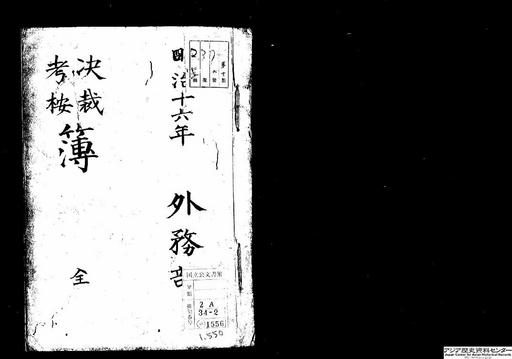 明治十六年 外務部
決裁
考按
簿
全
国立公文書館
2A
34-2
1556
1.550
アジア歴史資料センター
Japan Center for Asian Historical Records